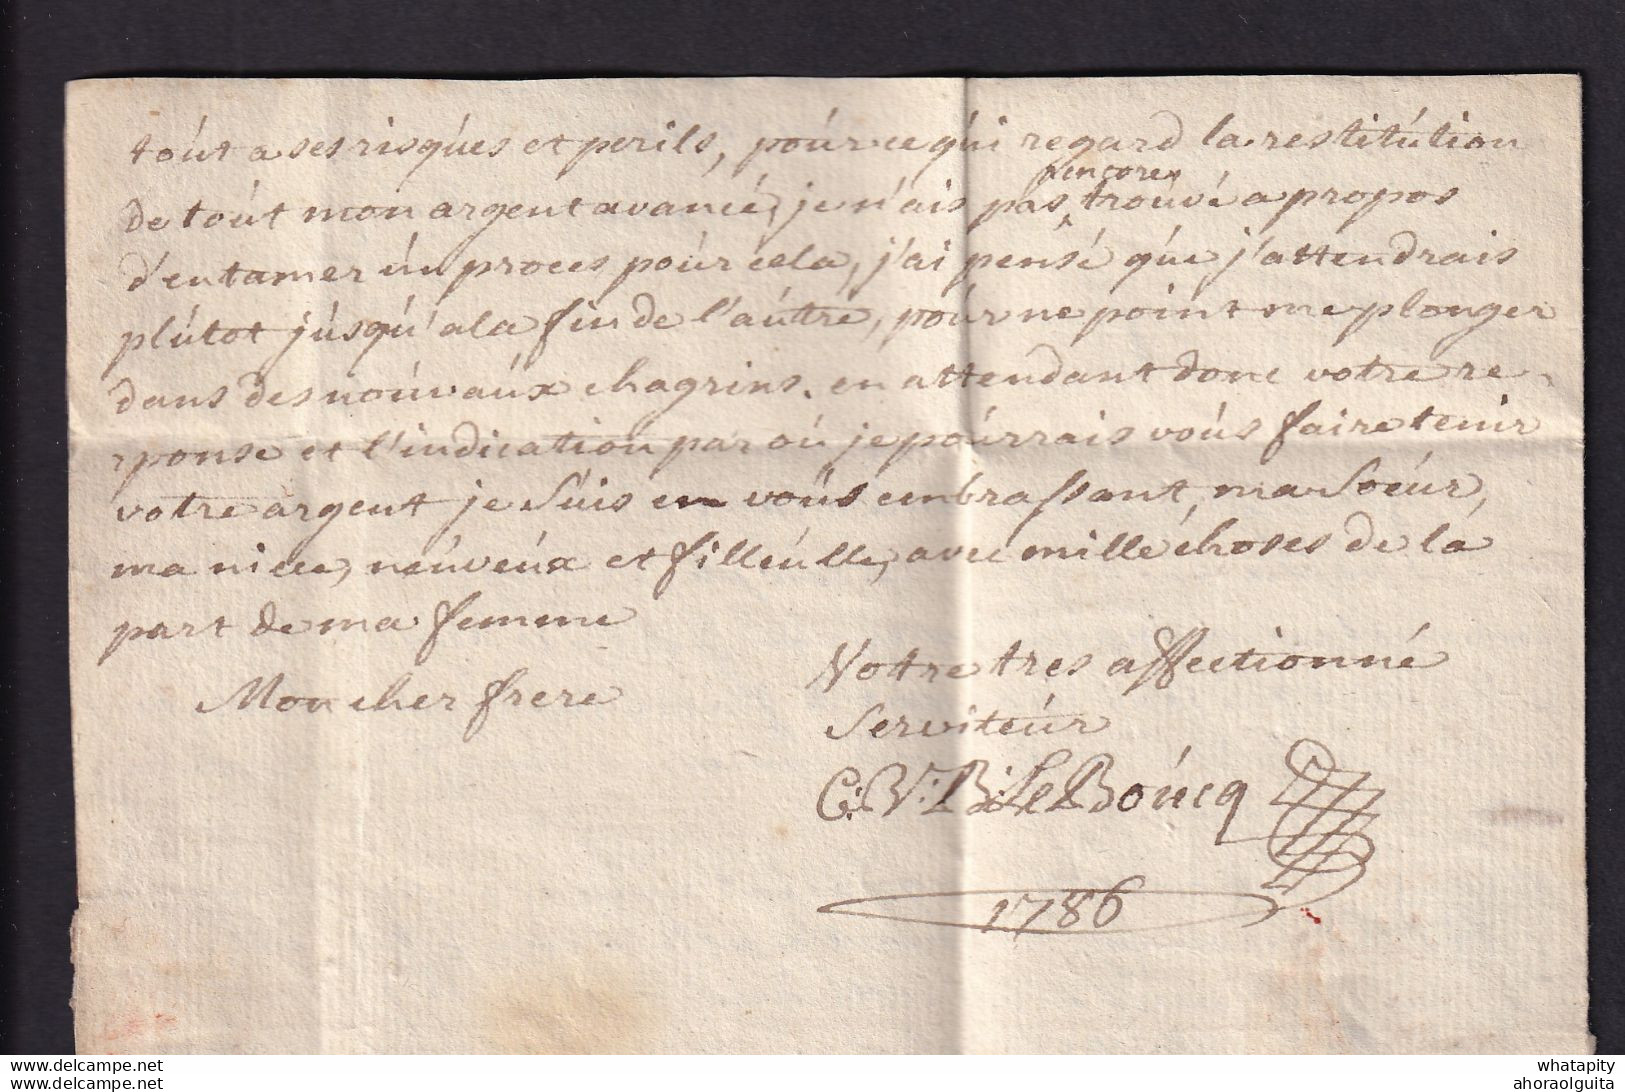 tout a ses risques et perils, pour ce qui regard la restitution
de tout mon argent avancé, je n'ais pas encore trouvé a propos
d'entamer un proces pour cela, j'ai pensé que j'attendrais
plutot jusqu'a la fin de l'autre, pour ne point me plonger
dans des nouvaux chagrins. en attendant donc votre re-
rponse et l'indication par ou je pourrais vous faire tenir
votre argent je suis en vous embrassant, ma soeur,
ma niece, neuveux et filleulle, avec mille choses de la
part de ma femme
Mon cher frere
Votre tres affectionné
Serviteur
C: V: B: Le Boucq
1786
whatapity
ahoraolguita
whatapity
ahoraolguita